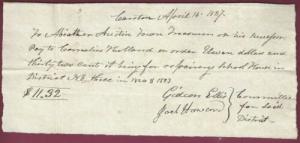 Canton April 16th 1827.
To Abiather Austin Town Treasurer or his successor
Pay to Cornelius Holland or order Eleven dollars and
thirty two cents it being for repairing School House in
District No three in 1823
$11.32
Gideon Ellis
Joel Howard
Committee
for Said
District